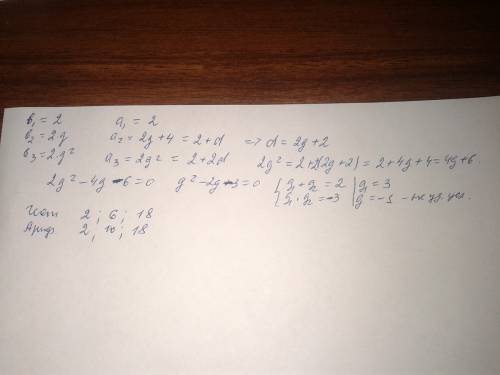 b₁ = 2 a₁ = 2
b₂ = 2q a₂ = 2q + 4 = 2 + d => d = 2q + 2
b₃ = 2q² a₃ = 2q² = 2 + 2d 2q² = 2 + 2(2q + 2) = 2 + 4q + 4 = 4q + 6.
2q² - 4q - 6 = 0 q² - 2q - 3 = 0 { q₁ + q₂ = 2 | q = 3
{ q₁ · q₂ = -3 | q = -1 - не уд. усл.
Геом 2 ; 6 ; 18
Арифм 2, 10 ; 18